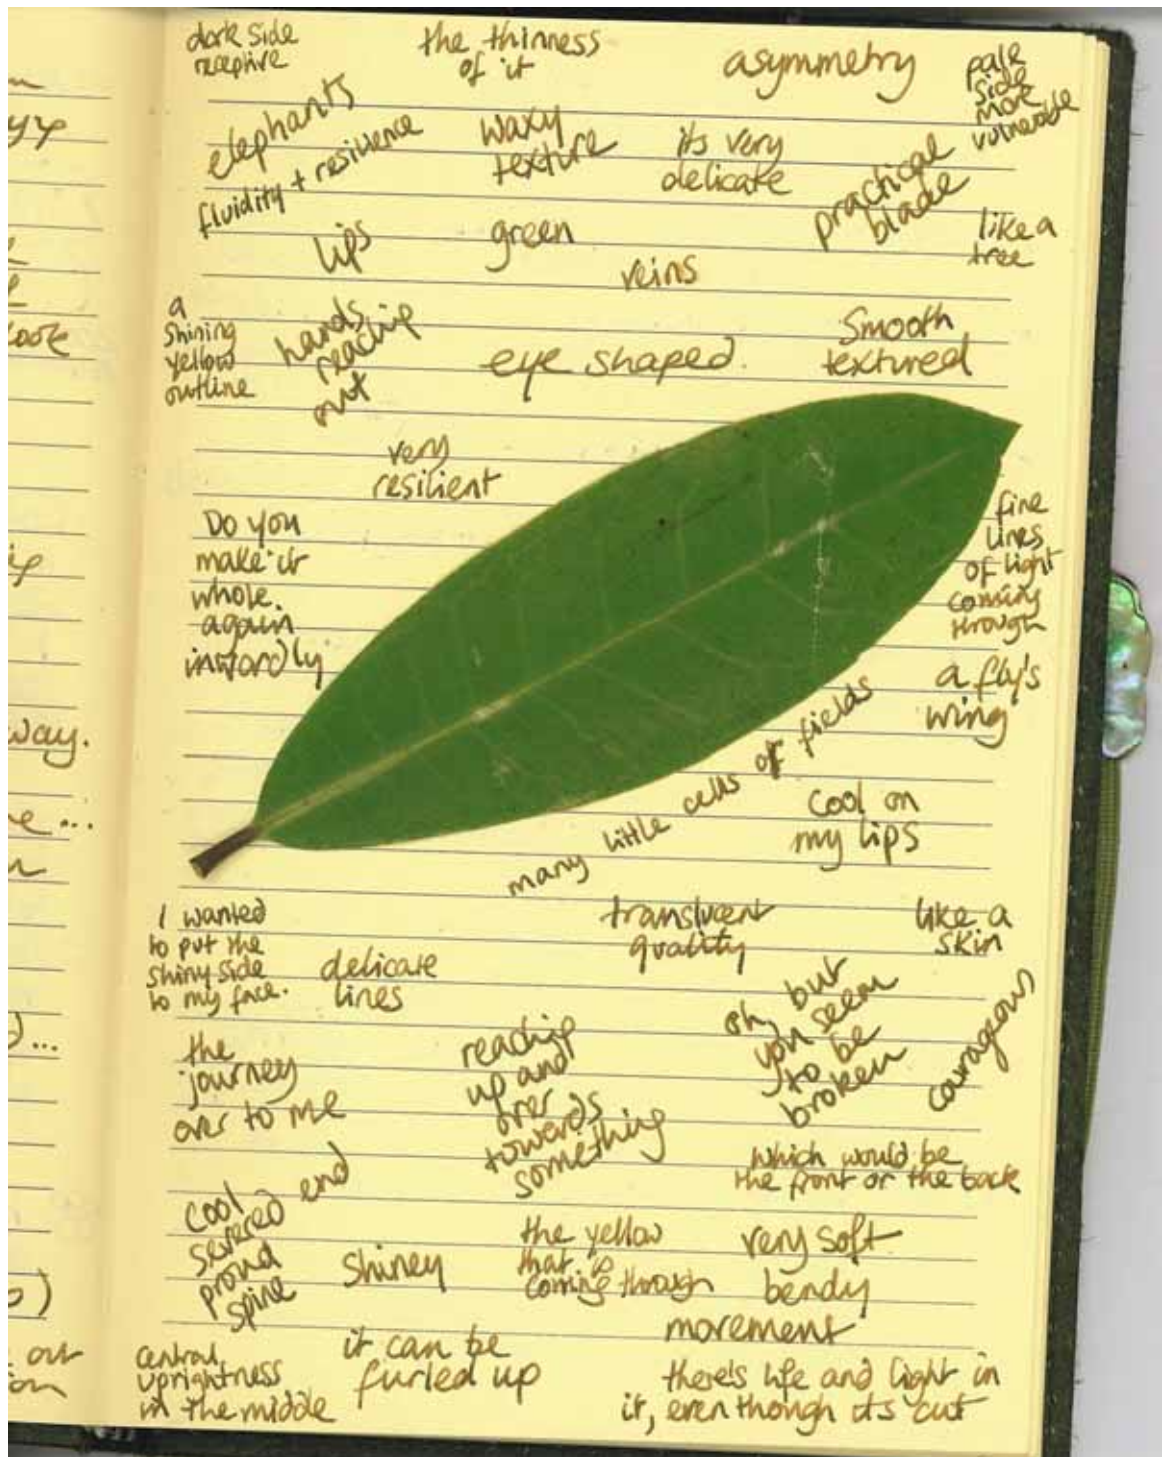 dark side
receptive
the thinness
of it
asymmetry
pale
side
more
vulnerable
elephants
fluidity + resilience
waxy
texture
its very
delicate
practical
blade
like a
tree
lips
green
veins
a
shining
yellow
outline
hands
reaching
out
eye shaped.
Smooth
textured
very
resilient
Do you
make it
whole
again
inwardly
fine
lines
of light
coming
through
a fly's
wing
many little cells of fields
Cool on
my lips
I wanted
to put the
shiny side
to my face.
delicate
lines
translucent
quality
like a
skin
oh, but
you seem
to be
broken
courageous
the
journey
over to me
reaching
up and
over
towards
something
which would be
the front or the back
cool
severed end
proud
spine
shiney
the yellow
that is
coming through
very soft
bendy
movement
central
uprightness
in the middle
it can be
furled up
there's life and light in
it, even though its cut
way.
e...
)...
out